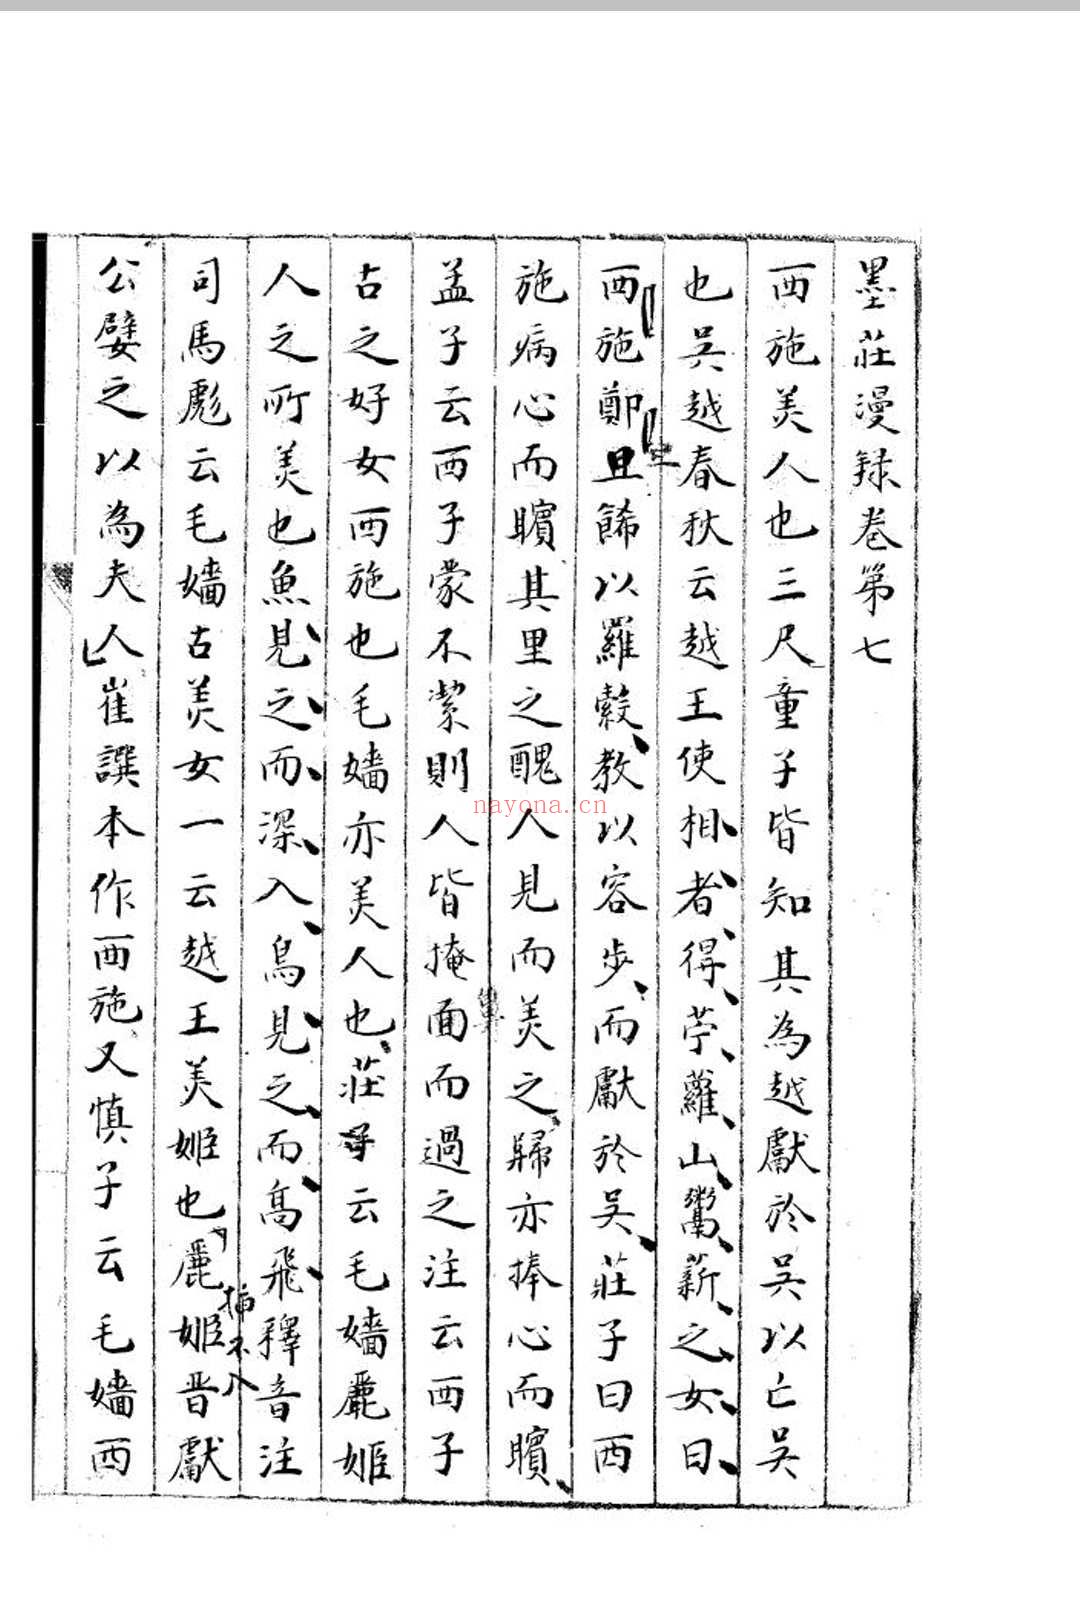 墨莊漫録卷第七
西施美人也三尺童子皆知其為越獻於吳以亡吳
也吳越春秋云越王使相者得苧蘿山鬻薪之女曰
西施鄭旦餙以羅縠教以容步而獻於吳莊子曰西
施病心而矉其里之醜人見而美之歸亦捧心而矉
孟子云西子蒙不㓗則人皆掩面而過之注云西子
古之好女西施也毛嬙亦美人也莊子云毛嬙麗姬
人之所美也魚見之而深入鳥見之而高飛釋音注
司馬彪云毛嬙古美女一云越王美姬也麗姬晋獻
公嬖之以為夫人崔譔本作西施又慎子云毛嬙西
nayona.cn